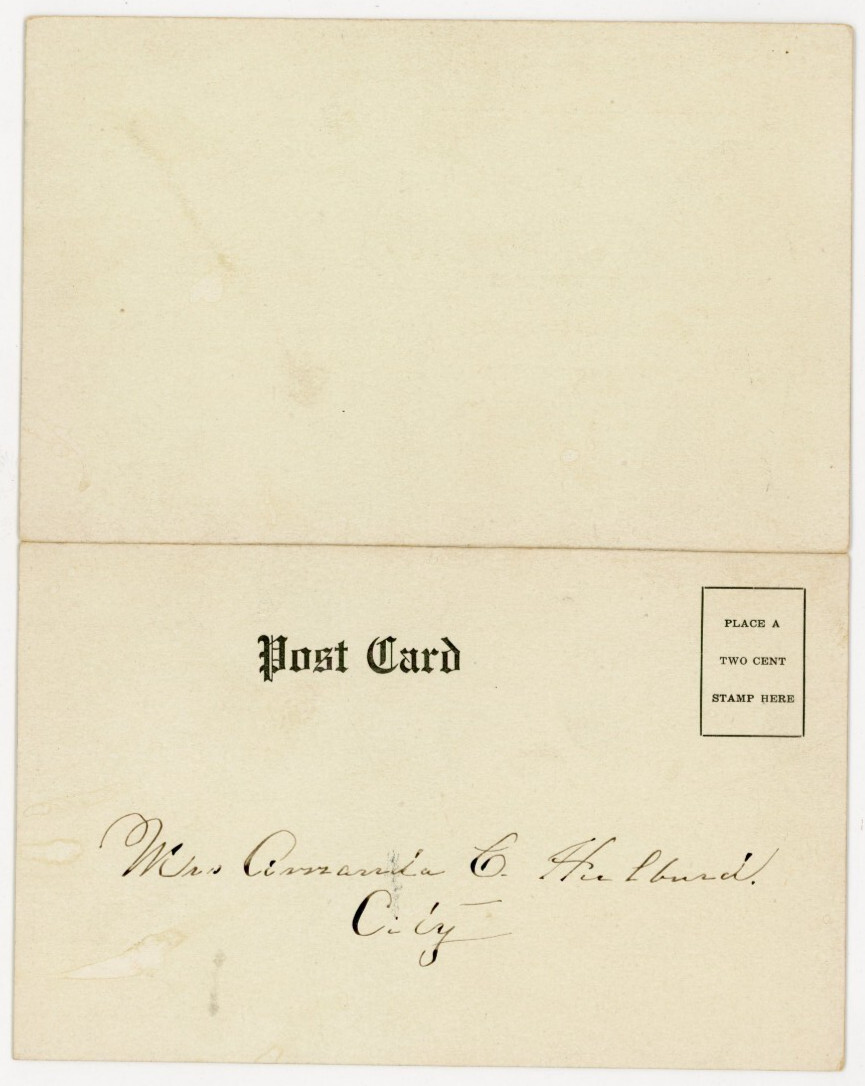 Post Card
PLACE A
TWO CENT
STAMP HERE
Mrs Amanda C. Hulburd.
City